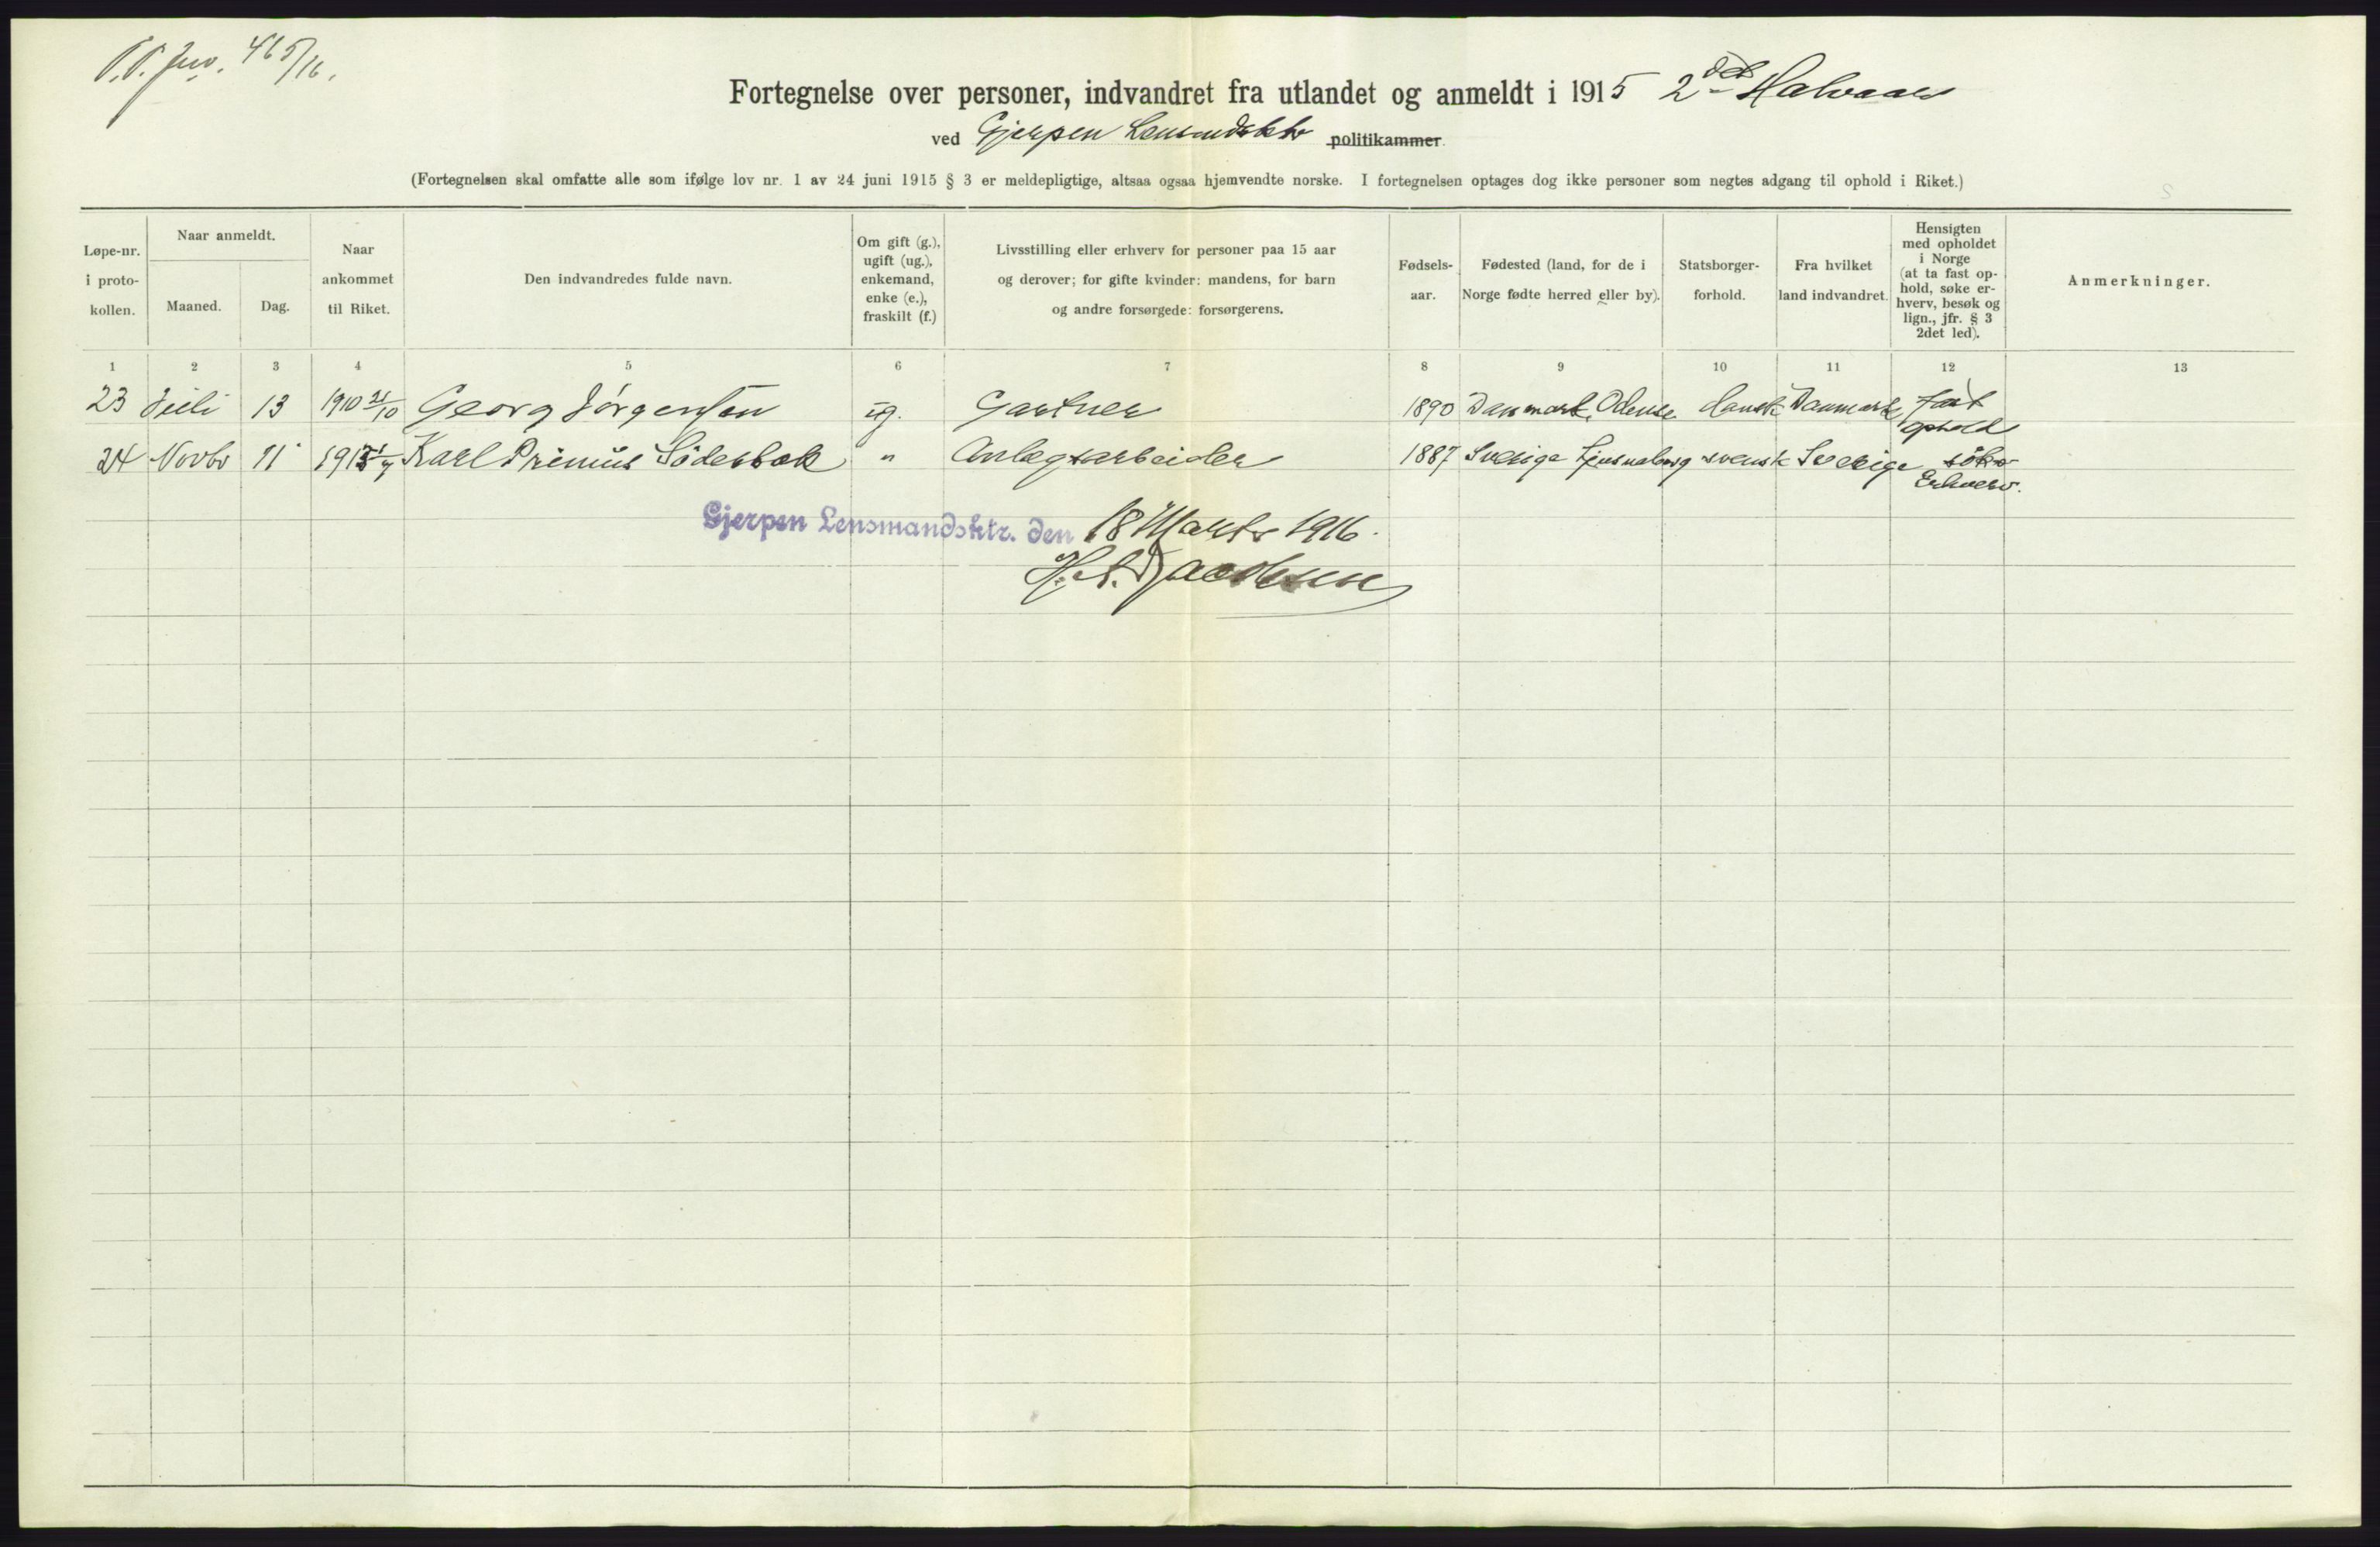 465/16.
Fortegnelse over personer, indvandret fra utlandet og anmeldt i 1915 2det Halvaar
ved Gjerpen Lensmdsktr politikammer.
(Fortegnelsen skal omfatte alle som ifølge lov nr. 1 av 24 juni 1915 § 3 er meldepligtige, altsaa ogsaa hjemvendte norske. I fortegnelsen optages dog ikke personer som negtes adgang til ophold i Riket.)
Løpe-nr. i proto- kollen.
Naar anmeldt.
Maaned.
Dag.
Naar ankommet til Riket.
Den indvandredes fulde navn.
Om gift (g.), ugift (ug.), enkemand, enke (e.), fraskilt (f.)
Livsstilling eller erhverv for personer paa 15 aar og derover; for gifte kvinder: mandens, for barn og andre forsørgede: forsørgerens.
Fødsels- aar.
Fødested (land, for de i Norge fødte herred eller by).
Statsborger- forhold.
Fra hvilket land indvandret.
Hensigten med opholdet i Norge (at ta fast op- hold, søke er- hverv, besøk og lign., jfr. § 3 2det led).
Anmerkninger.
1 2 3 4 5 6 7 8 9 10 11 12 13
23 Juli 13 1910 21/10 Georg Jörgensen ug. Gartner 1890 Danmark, Odense dansk Danmark fast ophold
24 Novbr 11 Karl Primus Söderbak " Anlægsarbeider 1887 Sverige Ljusnaberg svensk Sverige söke Erhverv.
Gjerpen Lensmandsktr. den 18 Marts 1916.
Jacobsen